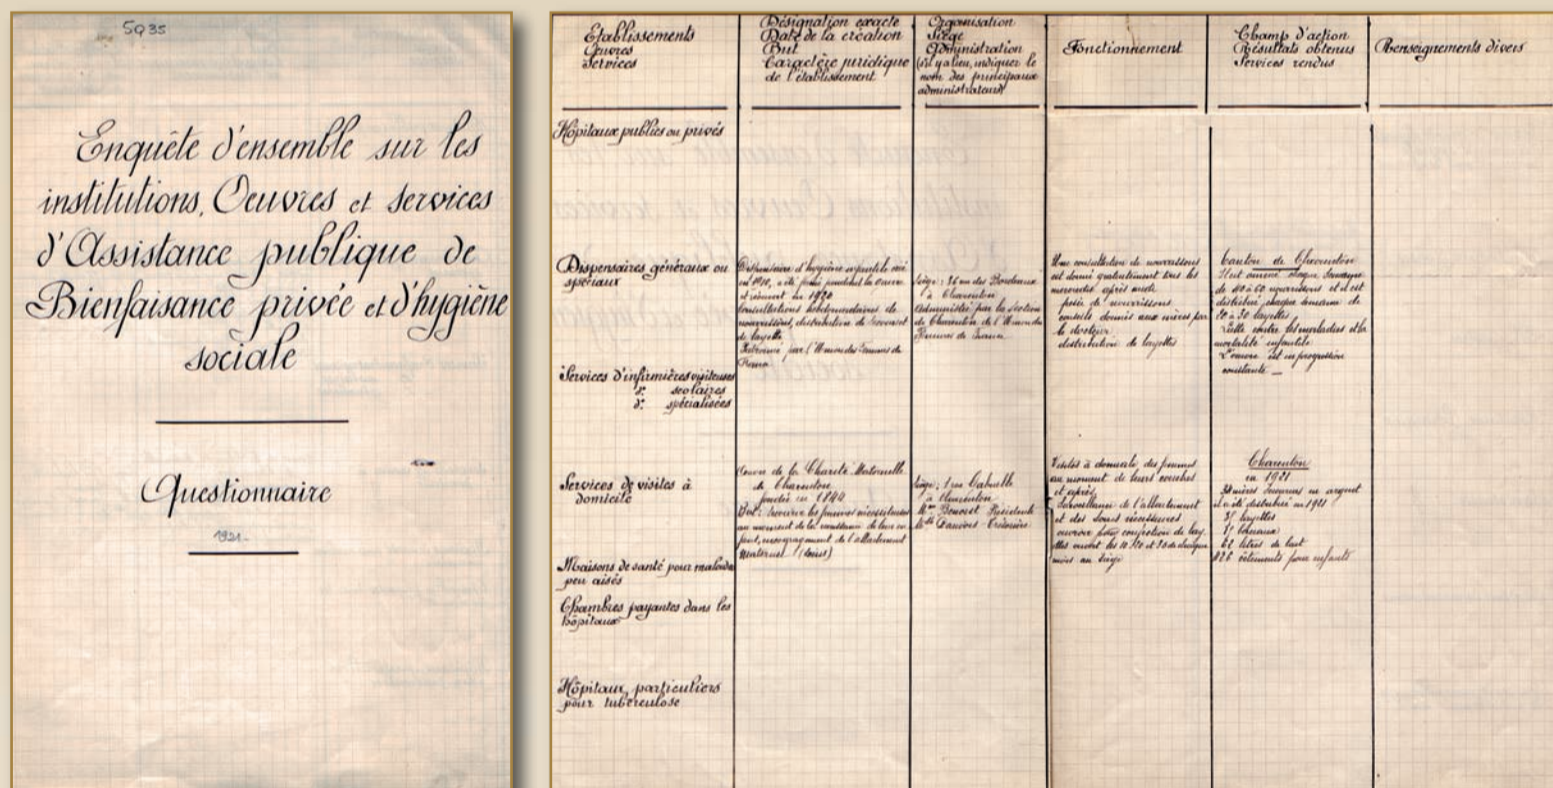 5Q35
Enquête d'ensemble sur les
institutions, Oeuvres et services
d'Assistance publique de
Bienfaisance privée et d'hygiène
sociale
Questionnaire
1921
Etablissements
Œuvres
Services
Désignation exacte
Date de la création
But
Caractère juridique
de l'établissement
Organisation
Siège
Administration
(s'il y a lieu, indiquer le
nom des principaux
administrateurs)
Fonctionnement
Champ d'action
Résultats obtenus
Services rendus
Renseignements divers
Hôpitaux publics ou privés
Dispensaires généraux ou
spéciaux
Dispensaire d'hygiène infantile créé
en 1910, a été fermé pendant la guerre
et réouvert en 1920
Consultations hebdomadaires de
nourrissons, distribution de
de layette
par l'Union des Femmes de
France
Siège : 36 rue des Bordeaux
à Charenton
Administrée par la Section
de Charenton de l'Union des
Femmes de France
Une consultation de nourrissons
est donnée gratuitement tous les
mercredis après midi
pesée de nourrissons
conseils donnés aux mères par
le docteur
distribution de layettes
Canton de Charenton
Il est amené chaque semaine
de 40 à 60 nourrissons et il est
distribué chaque semaine de
20 à 30 layettes
Lutte contre les maladies et la
mortalité infantile
L'œuvre est en progression
constante
Services d'infirmières visiteuses
d°. scolaires
d°. spécialisées
Services de visites à
domicile
Œuvre de la Charité Maternelle
de Charenton
fondée en 1844
But : secourir les femmes nécessiteuses
au moment de la naissance de leur en
fant, encouragement de l'allaitement
Maternel (soins)
Siège : 1 rue Gabrielle
à Charenton
Mme Présidente
Trésorière
Visites à domicile des femmes
au moment de leurs couches
et après
Surveillance de l'allaitement
et des soins nécessaires
ouvroir pour confection de lay
ettes ouvert les 10 20 et 30 de chaque
mois au siège
Charenton
en 1921
mères secourues en argent
il a été distribué en 1921
layettes
berceaux
62 litres de lait
426 vêtements pour enfants
Maisons de santé pour malades
peu aisés
Chambres payantes dans les
hôpitaux
Hôpitaux particuliers
pour tuberculose